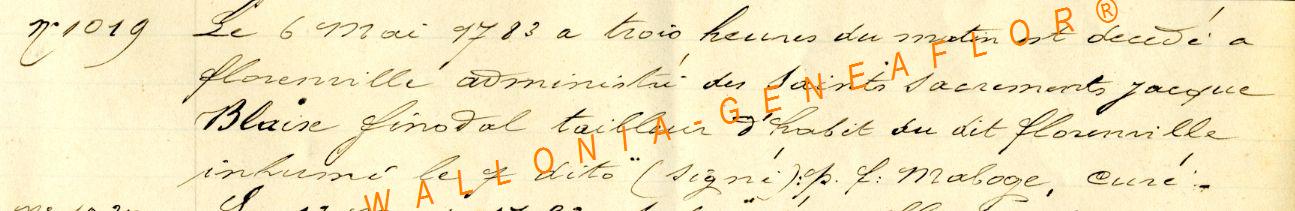 n° 1019 Le 6 Mai 1783 a trois heures du matin est decedé a
florenville administré des Saints Sacrements Jacque
Blaise finodal tailleur d'habit du dit florenville
inhumé le 7 dito (signé): p. f: Maboge, curé.-
WALLONIA-GENEAFLOR®